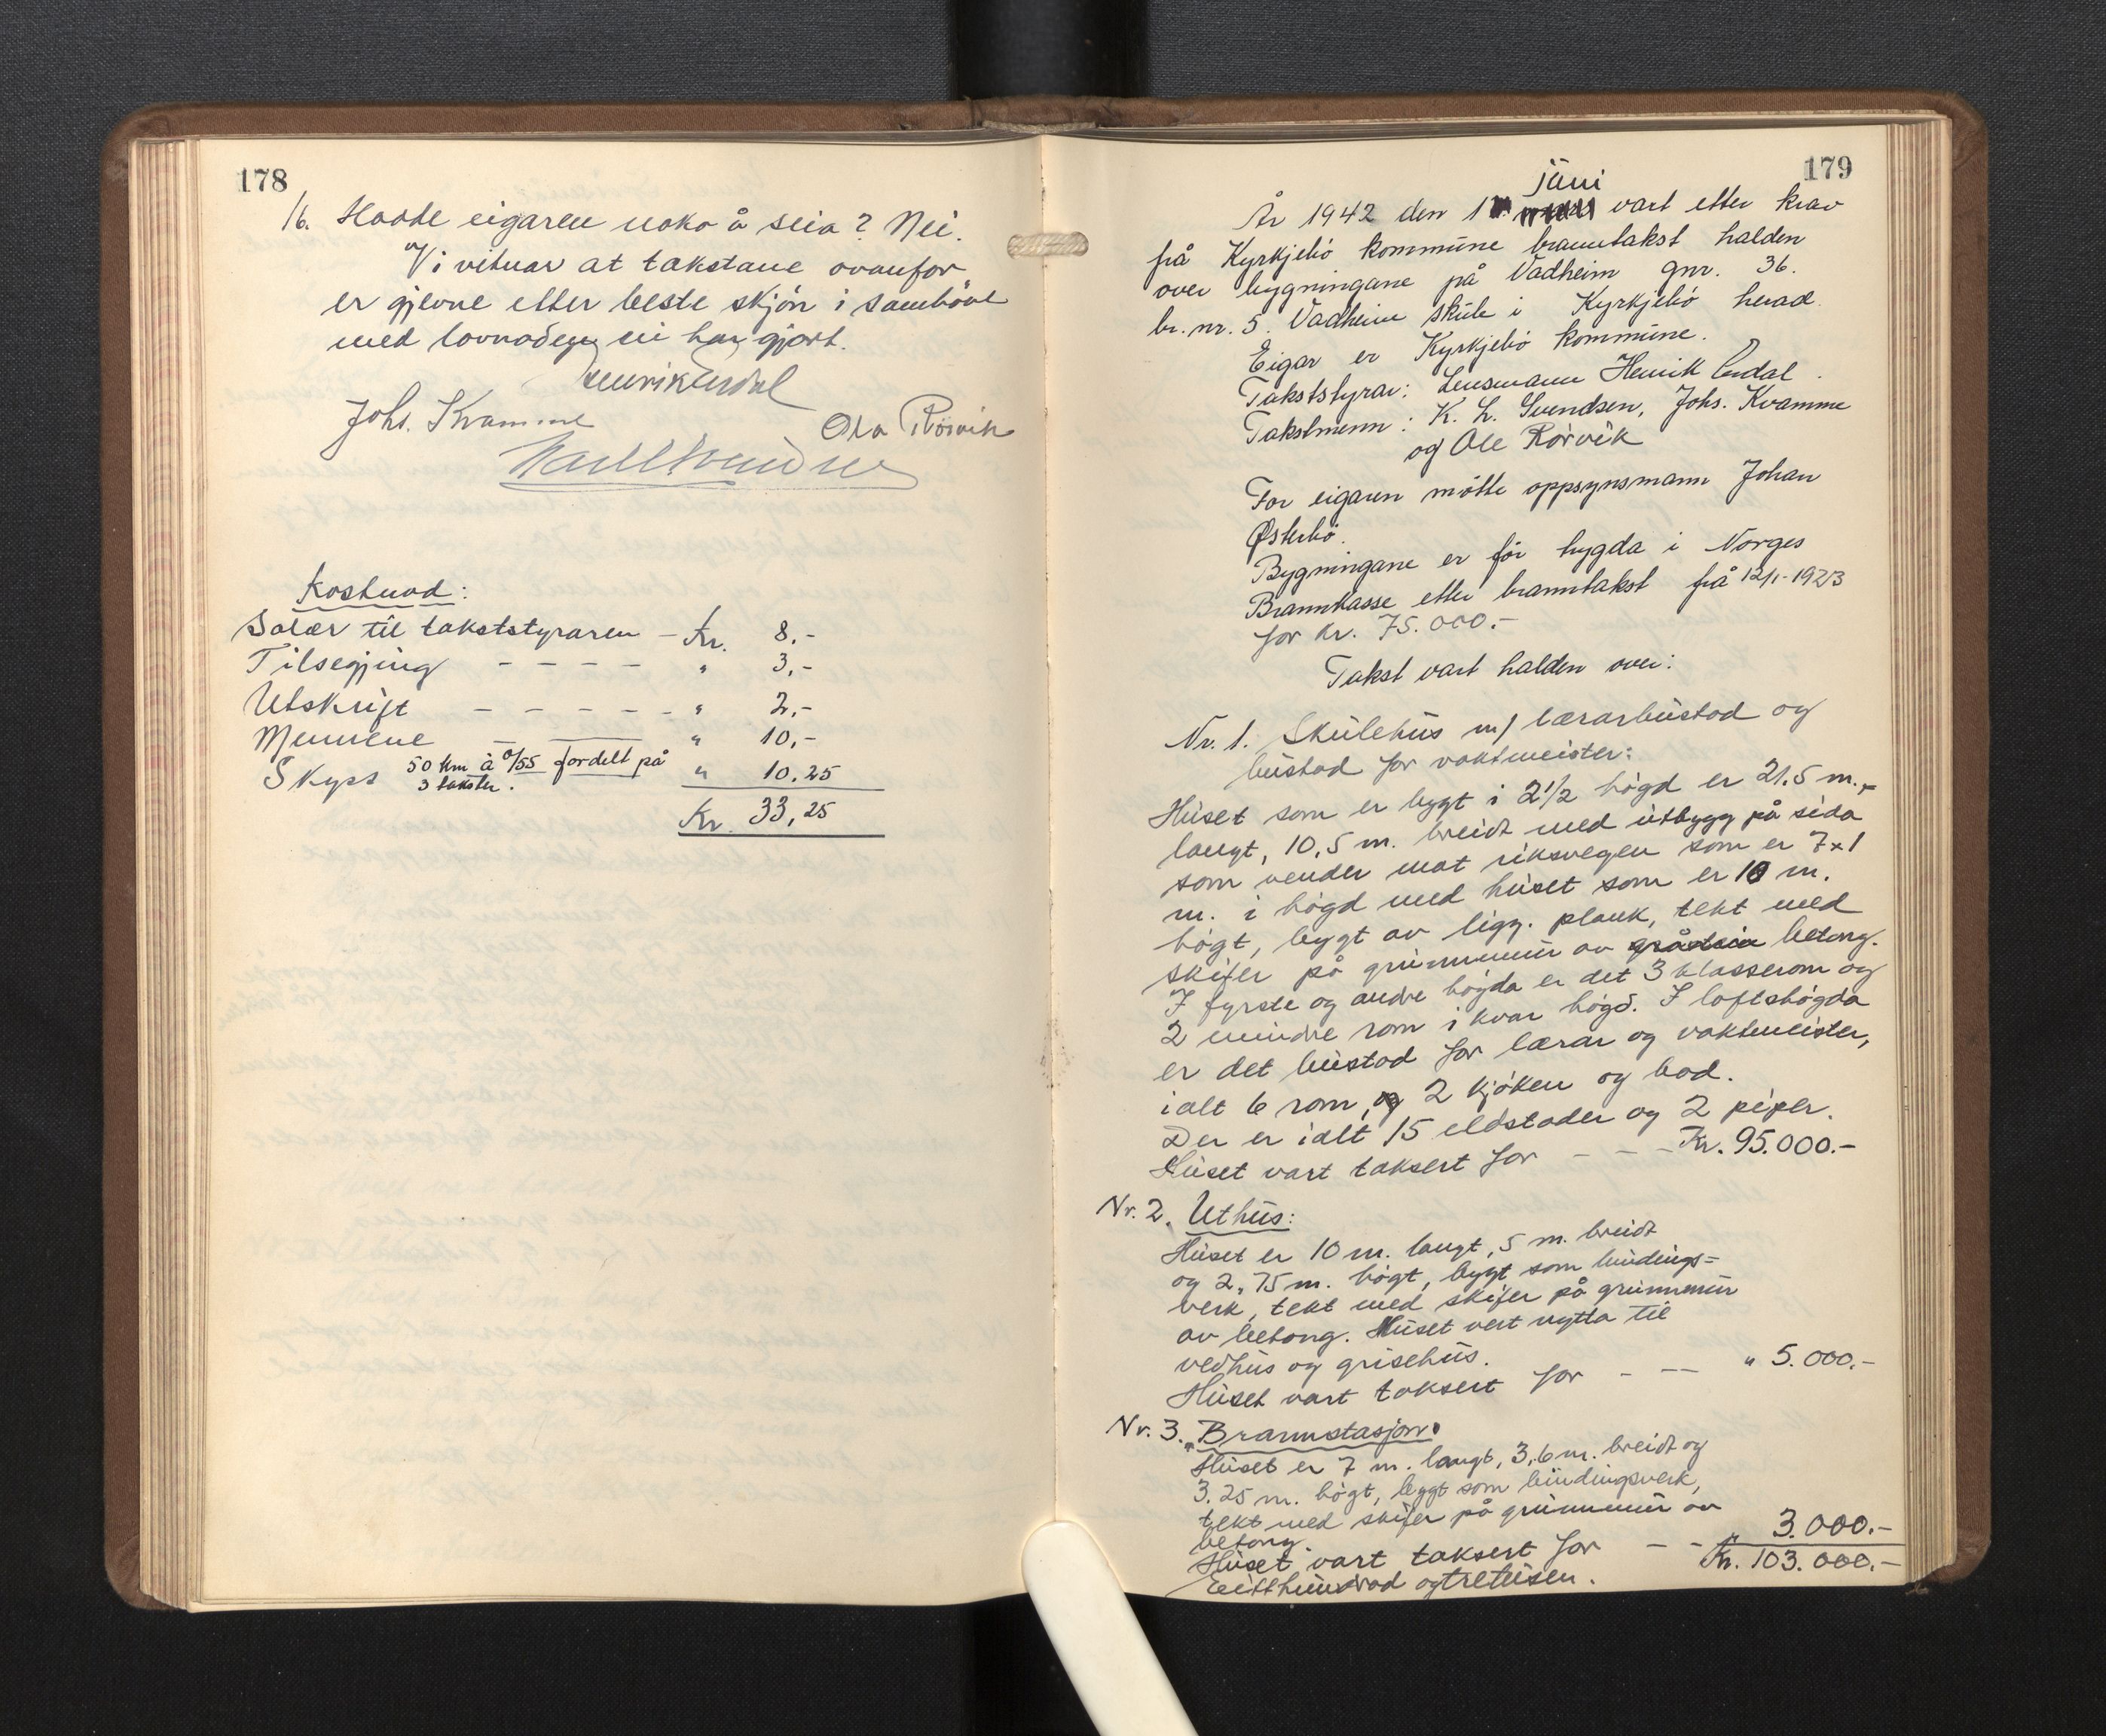 178
16. Hadde eigaren noko å seia? Nei.
Vi vitnar at takstane ovanfor
er gjevne etter beste skjön i samhöve
med lovnaden vi har gjort.
Henrik Endal
Johs. Kvamme
Ola Rörvik
Kostnad:
Salær til takststyraren – Kr. 8,-
Tilsegjing – – – – " 3,-
Utskrift – – – – – " 2,-
Mennene – " 10,-
Skyss 50 km à 0/55 fordelt på " 10,25
3 takster.
Kr. 33,25
179
juni
År 1942 den 1 vart etter krav
frå Kyrkjebö kommune branntakst halden
over bygningane på Vadheim gnr. 36.
br. nr. 5. Vadheim skule i Kyrkjebö herad.
Eigar er Kyrkjebö kommune.
Takststyrar: Lensmann Henrik Endal.
Takstmenn: K. L. Svendsen, Johs. Kvamme
og Ole Rörvik
For eigaren mötte oppsynsmann Johan
Österbö.
Bygningane er för trygda i Norges
Brannkasse etter branntakst frå 12/1-1923
for kr. 75.000.-
Takst vart halden over:
Nr. 1. Skulehus m/ lærarbustad og
bustad for vaktmeister:
Huset som er bygt i 2 1/2 högd er 21,5 m.
langt, 10,5 m. breidt med utbygg på sida
som vender mot riksvegen som er 7x1
m. i högd med huset som er 10 m.
högt, bygt av ligg. plank, tekt med
skifer på grunnmur av gråstein betong.
I fyrste og andre högda er det 3 klasserom og
2 mindre rom i kvar högd. I loftshögda
er det bustad for lærar og vaktmeister,
ialt 6 rom, og 2 kjöken og bad.
Der er ialt 15 eldstader og 2 piper.
Huset vart taksert for – – – Kr. 95.000.-
Nr. 2. Uthus:
Huset er 10 m. langt, 5 m. breidt
og 2,75 m. högt, bygt som bindings=
verk, tekt med skifer på grunnmur
av betong. Huset vert nytta til
vedhus og grisehus.
Huset vart taksert for – –– " 5.000.-
Nr. 3. Brannstasjon.
Huset er 7 m. langt, 3,6 m. breidt og
3.25 m. högt, bygt som bindingsverk,
tekt med skifer på grunnmur av
betong.
Huset vart taksert for – – 3.000.-
Eitthundrad og tretusen. Kr. 103.000.-